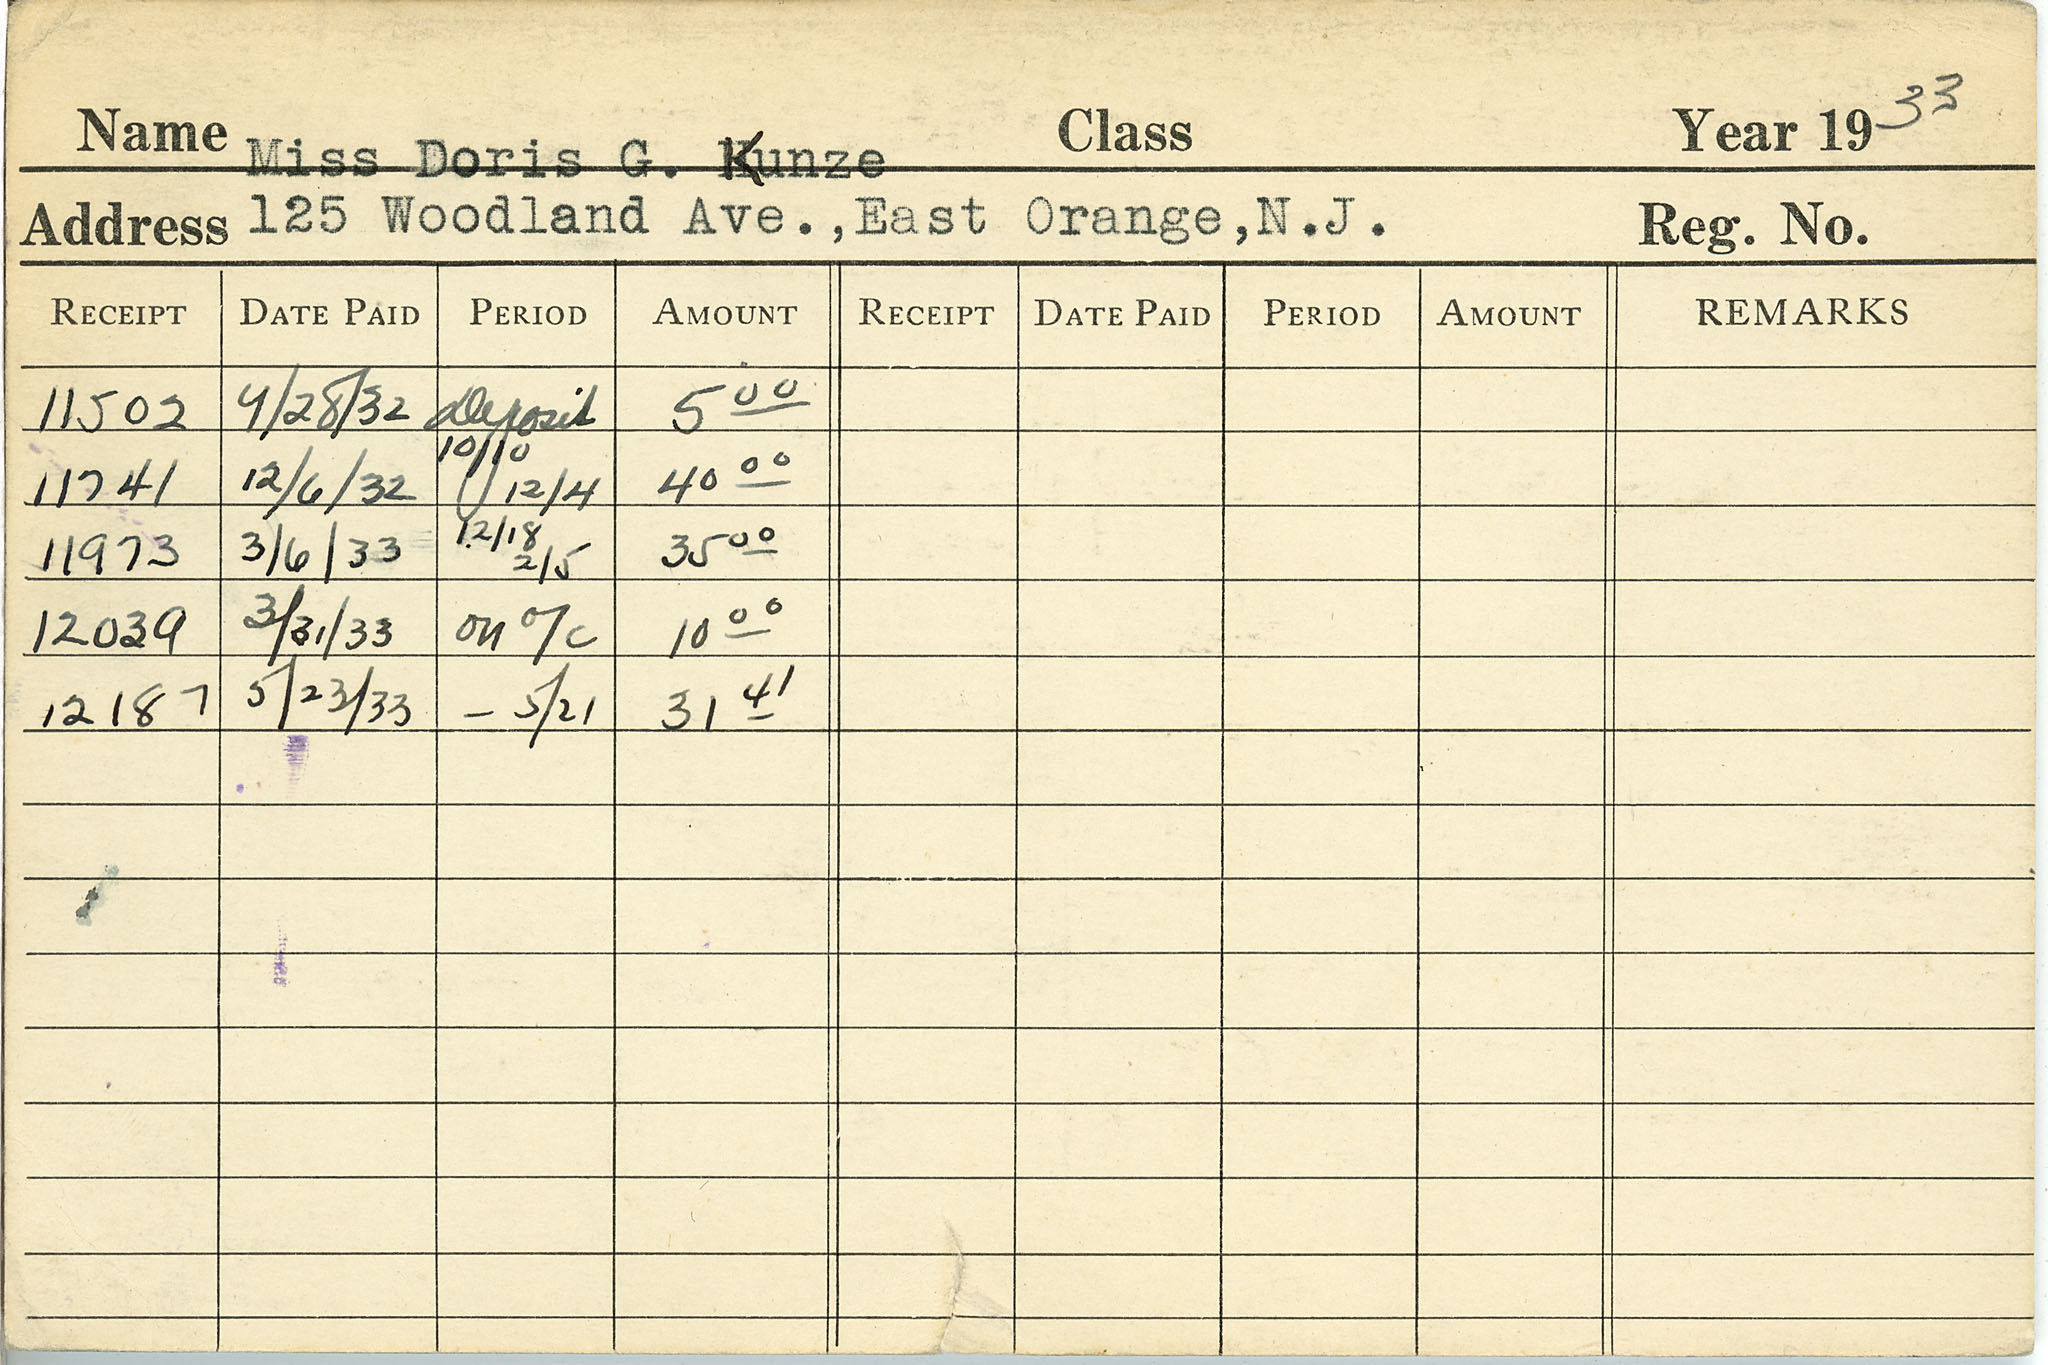 Name Miss Doris G. Kunze Class Year 19 33
Address 125 Woodland Ave., East Orange, N.J. Reg. No.
RECEIPT DATE PAID PERIOD AMOUNT RECEIPT DATE PAID PERIOD AMOUNT REMARKS
11502 9/28/32 Deposit 5 00
11741 12/6/32 10/10 12/4 40 00
11973 3/6/33 12/18 2/5 35 00
12039 3/31/33 on a/c 10 00
12187 5/23/33 – 5/21 31 41